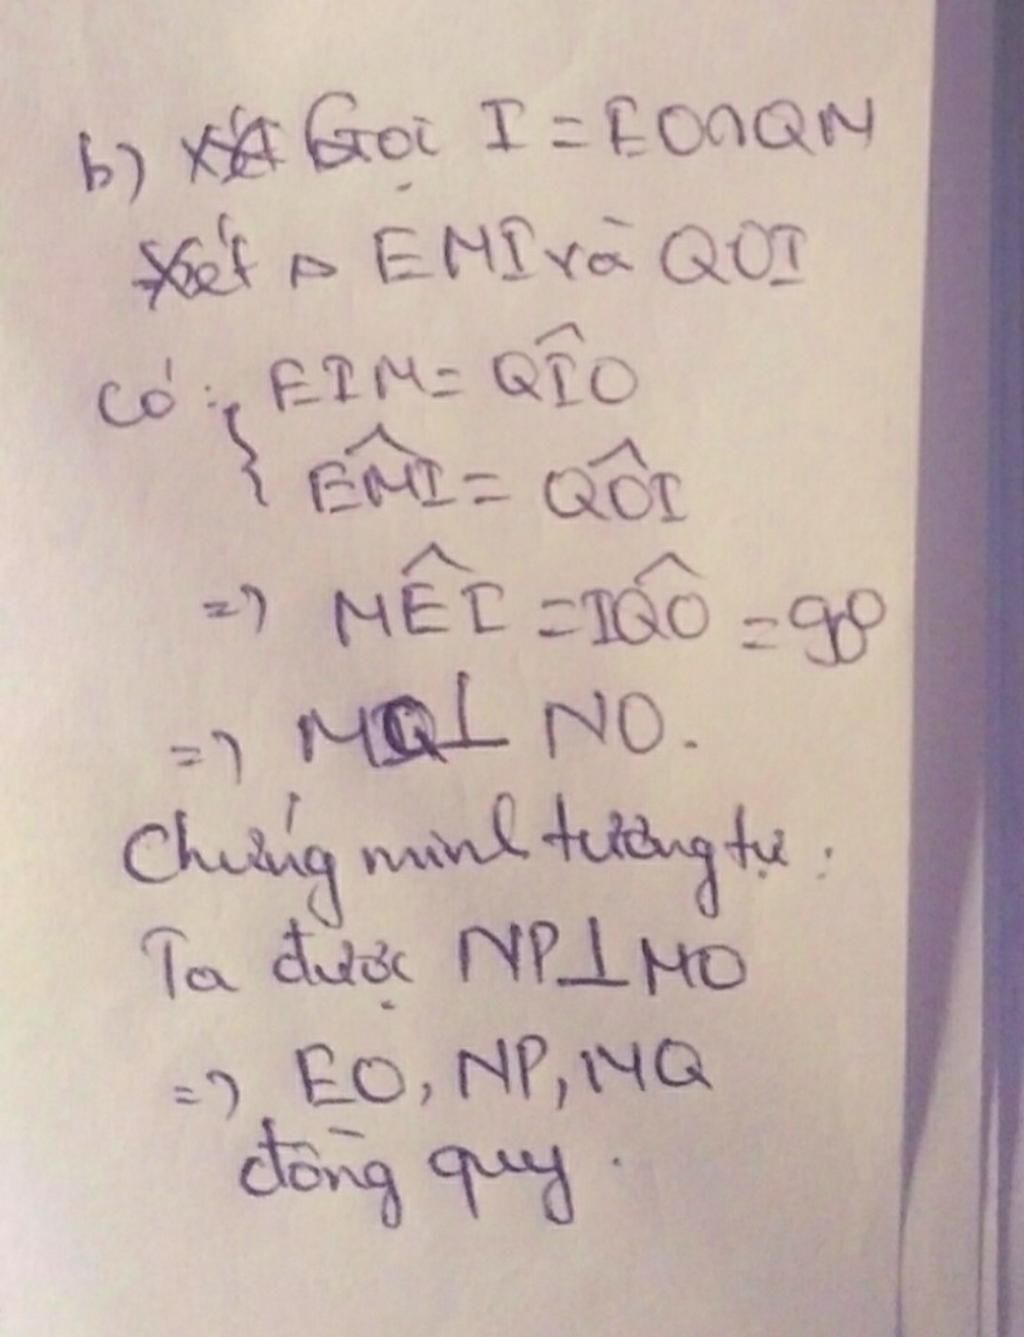 b) Gọi I = EO∩QM
Xét △ EMI và QOI
Có : { EIM = QÎO
EM̂I = QÔI
=> MÊI = IQ̂O = 90°
=> MQ ⊥ NO.
Chứng minh tương tự :
Ta được NP ⊥ MO
=> EO, NP, MQ
đồng quy .